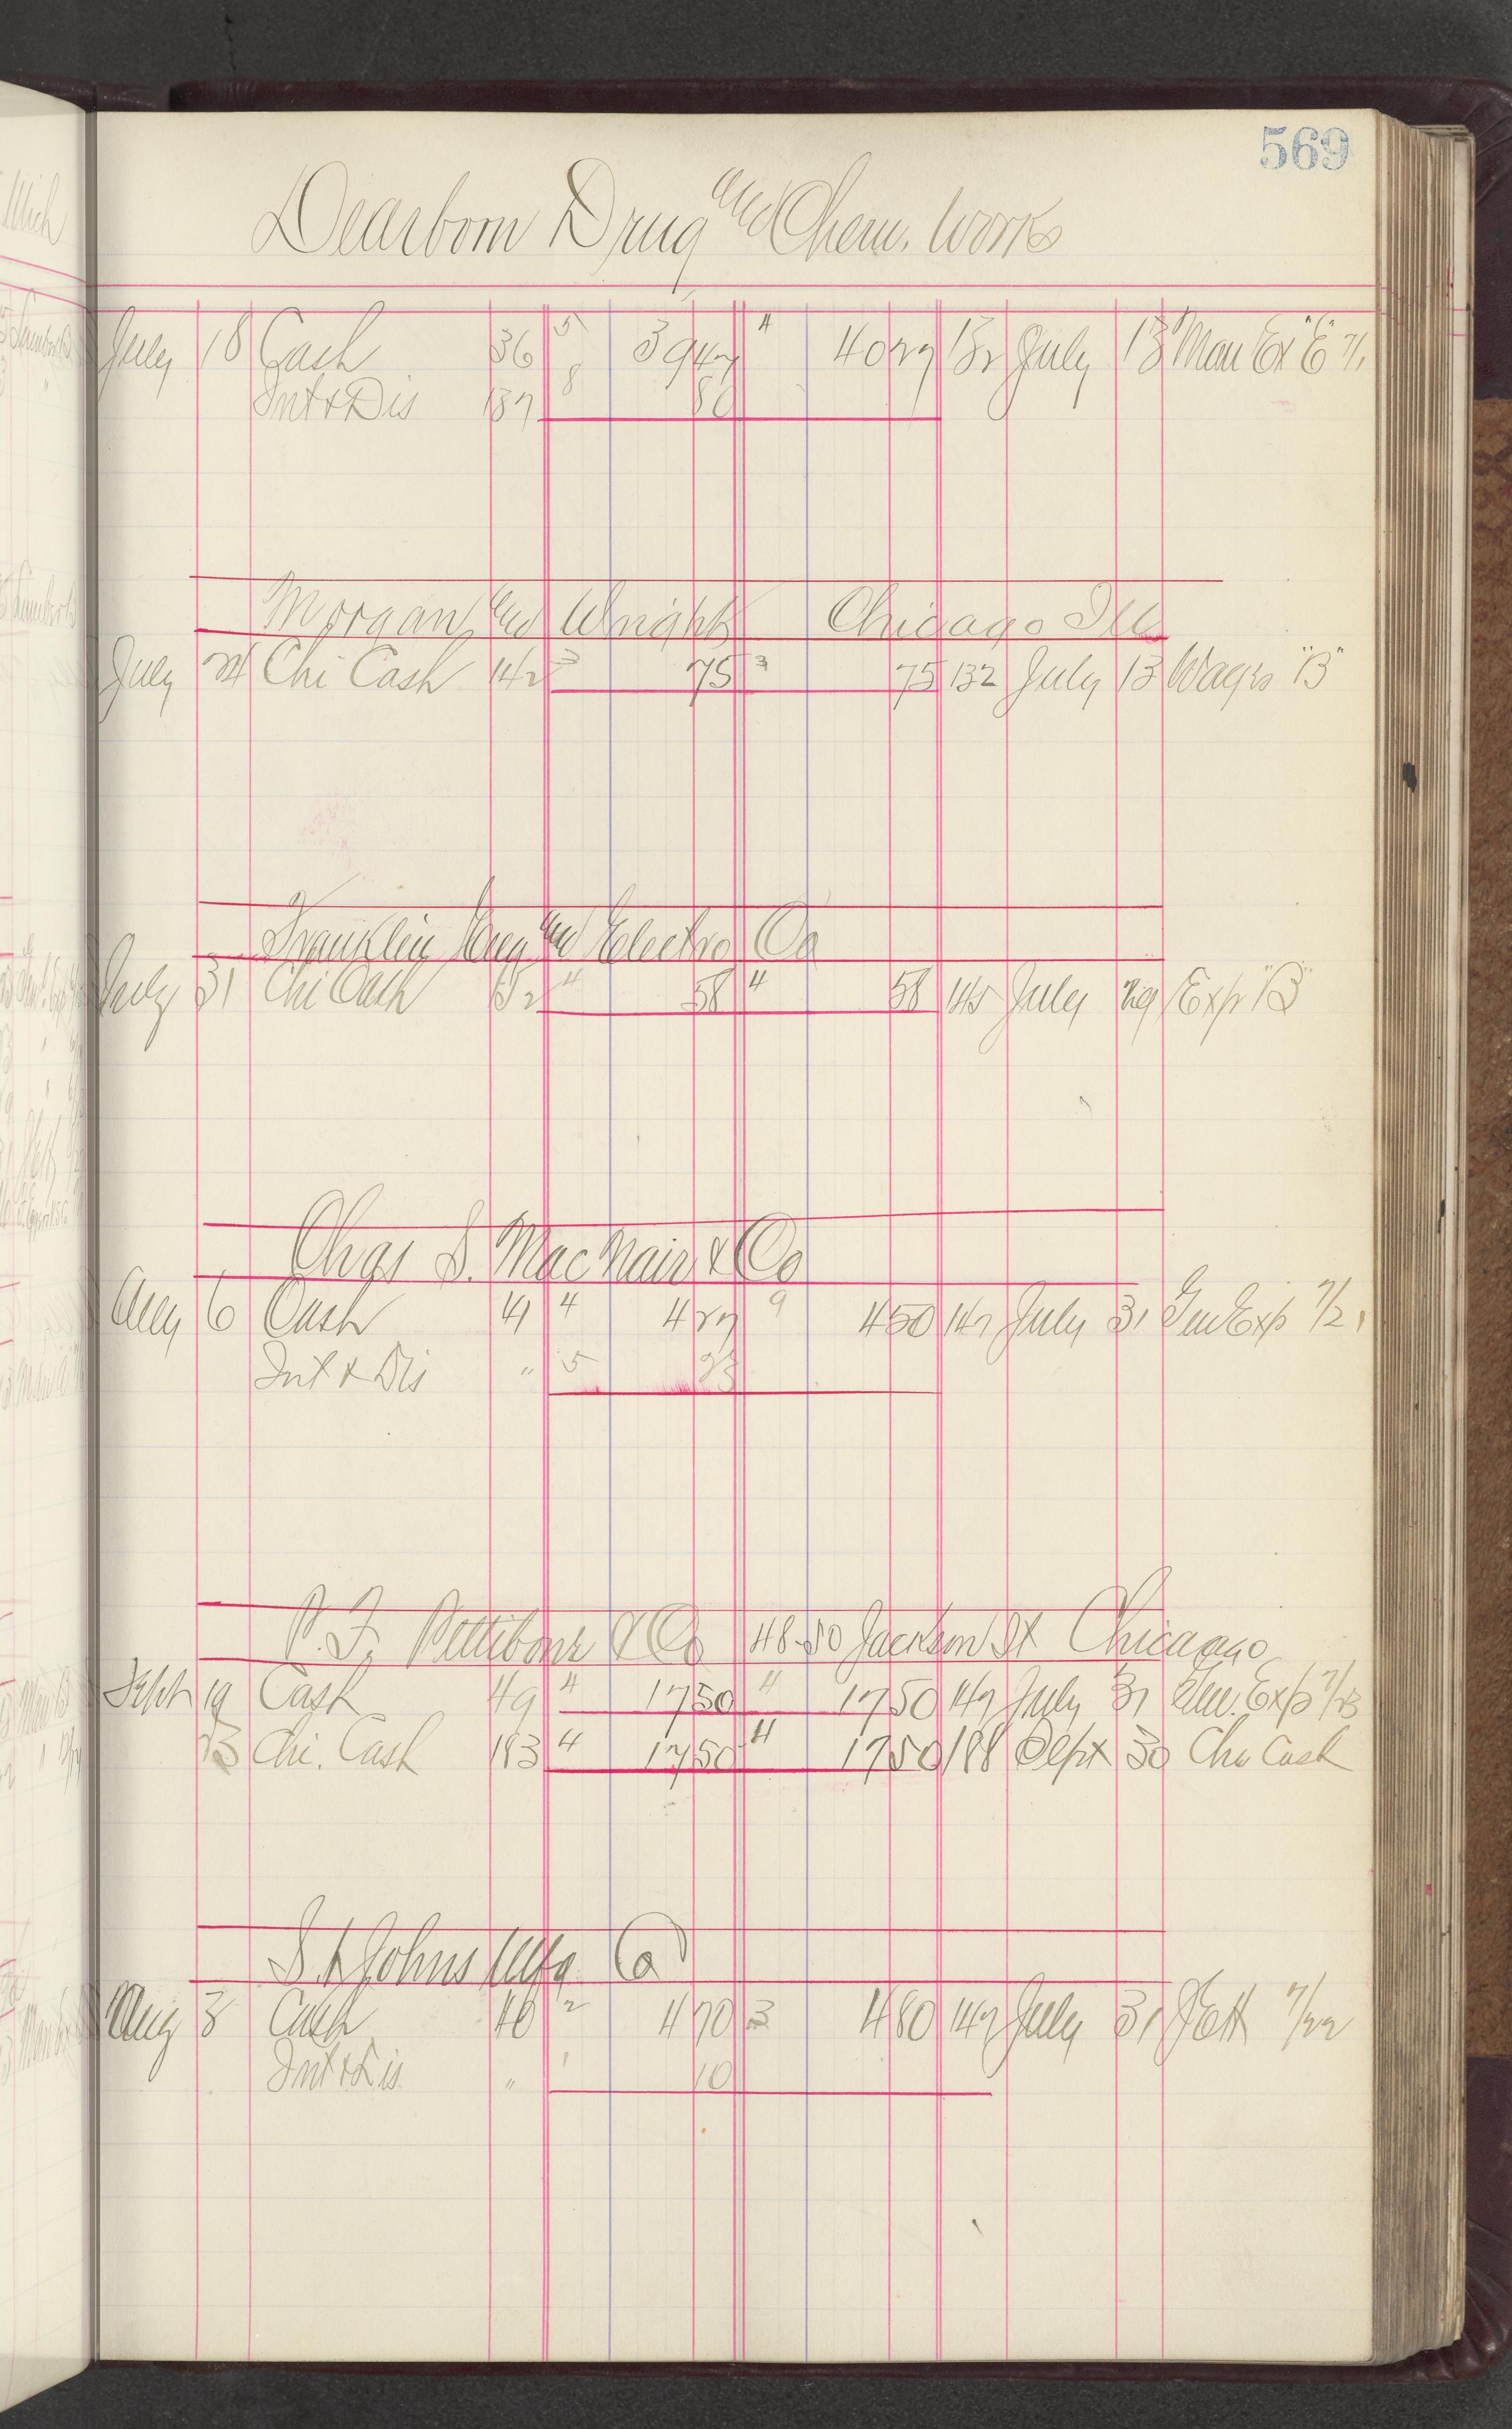 569
Dearborn Drug and Chem. Works
July 18 Cash 36 5 3947 4 4027 132 July 13 Man Ex "E" 7/1
Int & Dis 137 8 80
Morgan and Wright Chicago Ill
July 24 Chi Cash 142 3 75 3 75 132 July 13 Wages "B"
Franklin Eng and Electro Co
July 31 Chi Cash 152 4 58 4 58 145 July 29 Exp "B"
Chas D. MacNair & Co
Aug 6 Cash 41 4 427 9 450 147 July 31 Gen Exp 7/2
Int & Dis " 5 23
P. F. Pettibone & Co 48-50 Jackson St Chicago
Sept 19 Cash 49 4 1750 4 1750 147 July 31 Gen. Exp 7/23
23 Chi. Cash 183 4 1750 4 1750 188 Sept 30 Chi Cash
St Johns Mfg Co
Aug 3 Cash 40 2 470 3 480 147 July 31 7/22
Int & Dis " 1 10